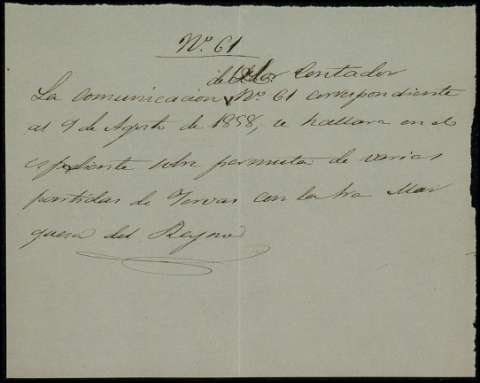 N.º 61
del Sor Contador
La comunicacion N.º 61 correspondiente
al 9 de Agosto de 1858, se hallara en el
espediente sobre permuta de varias
partidas de Yervas con la Sra Mar
quesa del Reyno